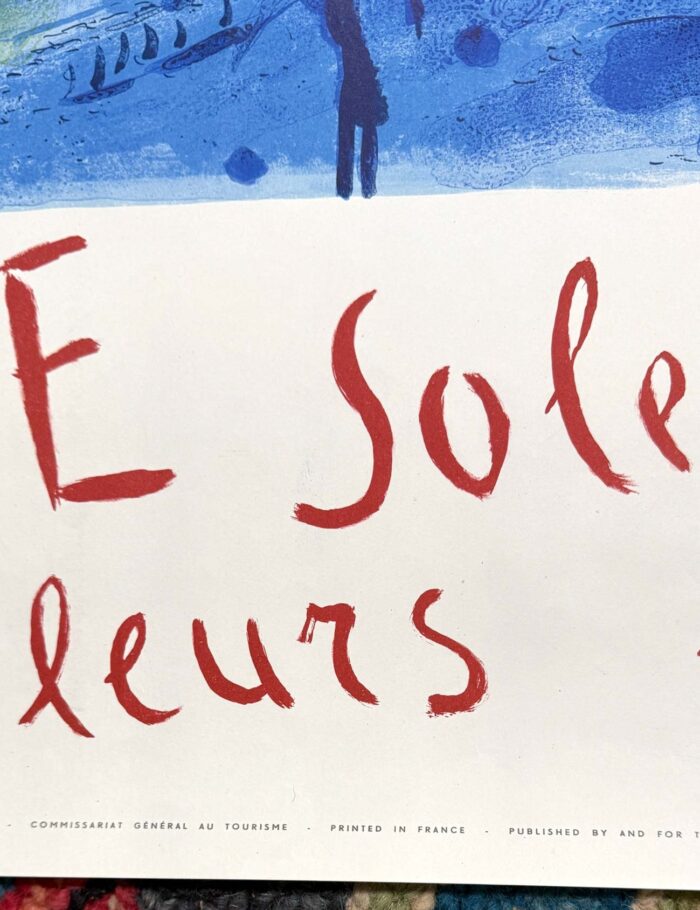 E Sole
leurs
- COMMISSARIAT GÉNÉRAL AU TOURISME - PRINTED IN FRANCE - PUBLISHED BY AND FOR T